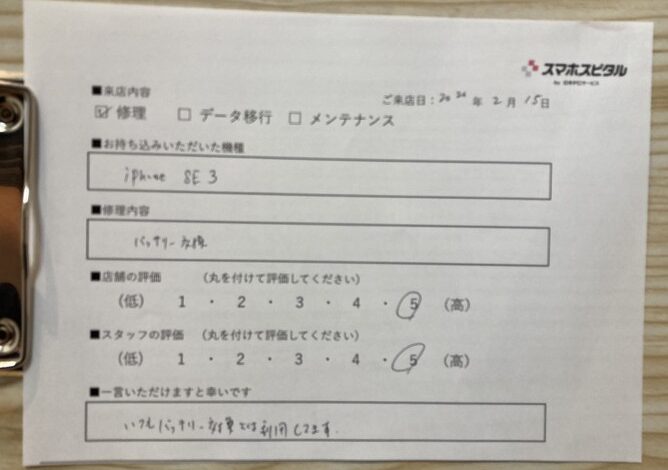 スマホスピタル
■来店内容
ご来店日: 年 2 月 15 日
☑ 修理 □ データ移行 □ メンテナンス
■お持ち込みいただいた機種
iphone SE 3
■修理内容
バッテリー交換
■店舗の評価 (丸を付けて評価してください)
(低) 1 ・ 2 ・ 3 ・ 4 ・ 5 (高)
■スタッフの評価 (丸を付けて評価してください)
(低) 1 ・ 2 ・ 3 ・ 4 ・ 5 (高)
■一言いただけますと幸いです
いつもバッテリー交換では利用してます.